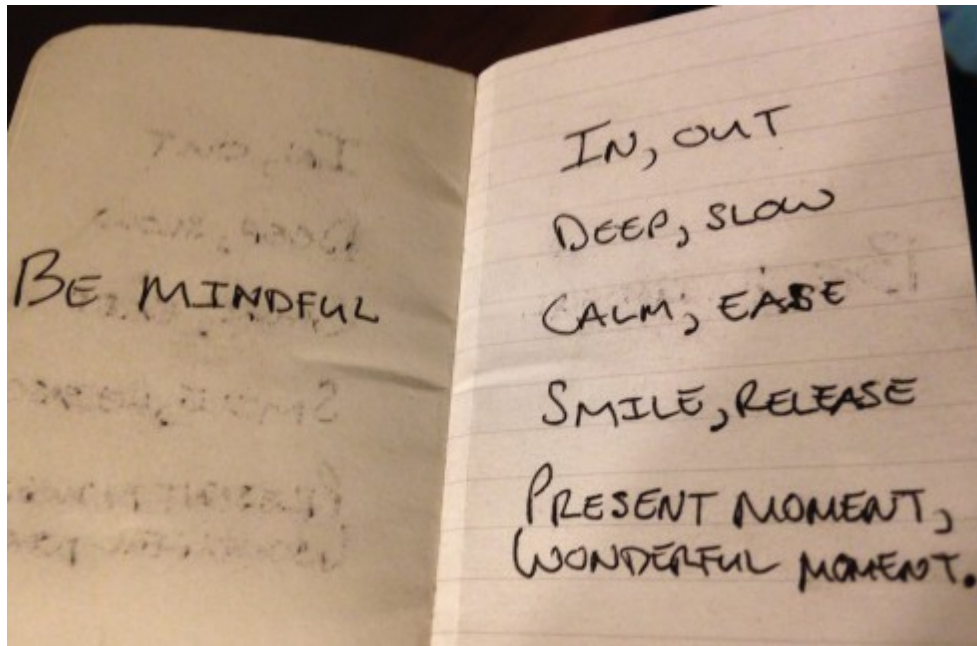 BE MINDFUL
IN, OUT
DEEP, SLOW
CALM, EASE
SMILE, RELEASE
PRESENT MOMENT,
WONDERFUL MOMENT.